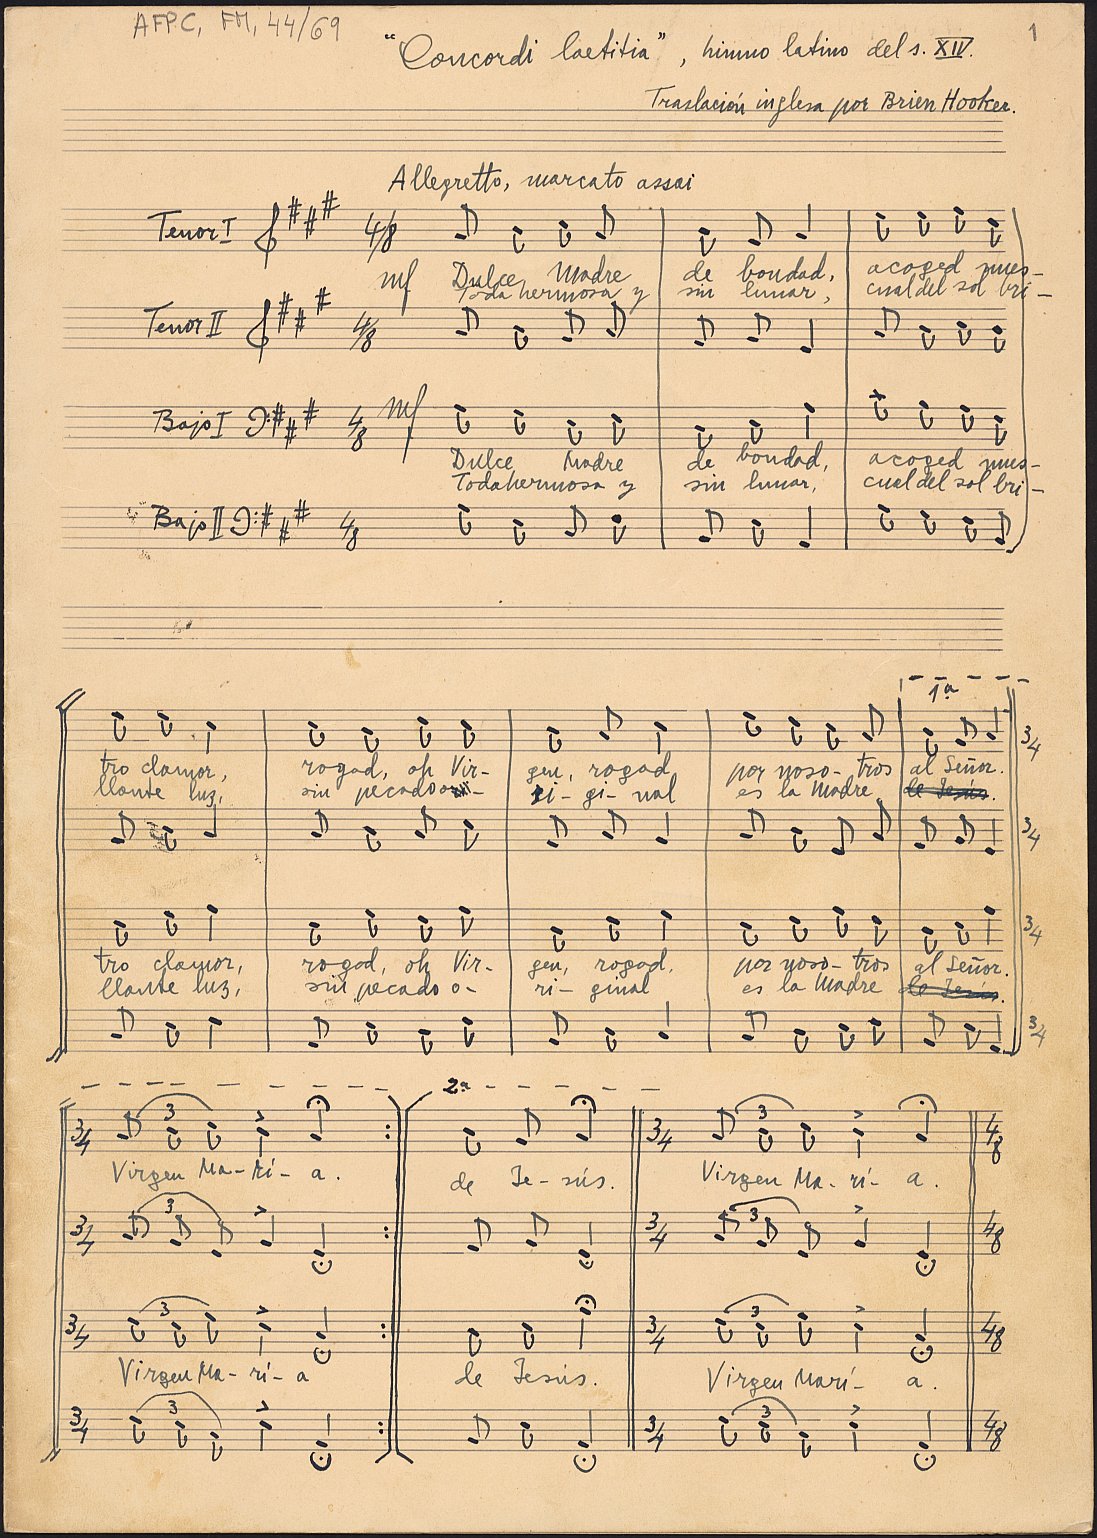 AFPC, FM, 44/69
1
"Concordi laetitia", himno latino del s. XIV.
Traslación inglesa por Brien Hooker.
Allegretto, marcato assai
Tenor I 4/8
mf Dulce Madre de bondad, acoged nues-
Toda hermosa y sin lunar, cual del sol bri-
Tenor II 4/8
Bajo I 4/8 mf
Dulce Madre de bondad, acoged nues-
Toda hermosa y sin lunar, cual del sol bri-
Bajo II 4/8
1ª
3/4
tro clamor, rogad, oh Vir- gen, rogad por noso- tros al Señor.
llante luz, sin pecado o- ri- gi- nal es la Madre de Jesús.
3/4
3/4
tro clamor, rogad, oh Vir- gen, rogad, por noso- tros al Señor.
llante luz, sin pecado o- ri- ginal es la Madre de Jesús.
3/4
2ª
3/4 3 3/4 3 4/8
Virgen Ma- rí- a. de Je- sús. Virgen Ma- rí- a.
3/4 3 3/4 3 4/8
3/4 3 3/4 3 4/8
Virgen Ma- rí- a de Jesús. Virgen Marí- a.
3/4 3 3/4 3 4/8